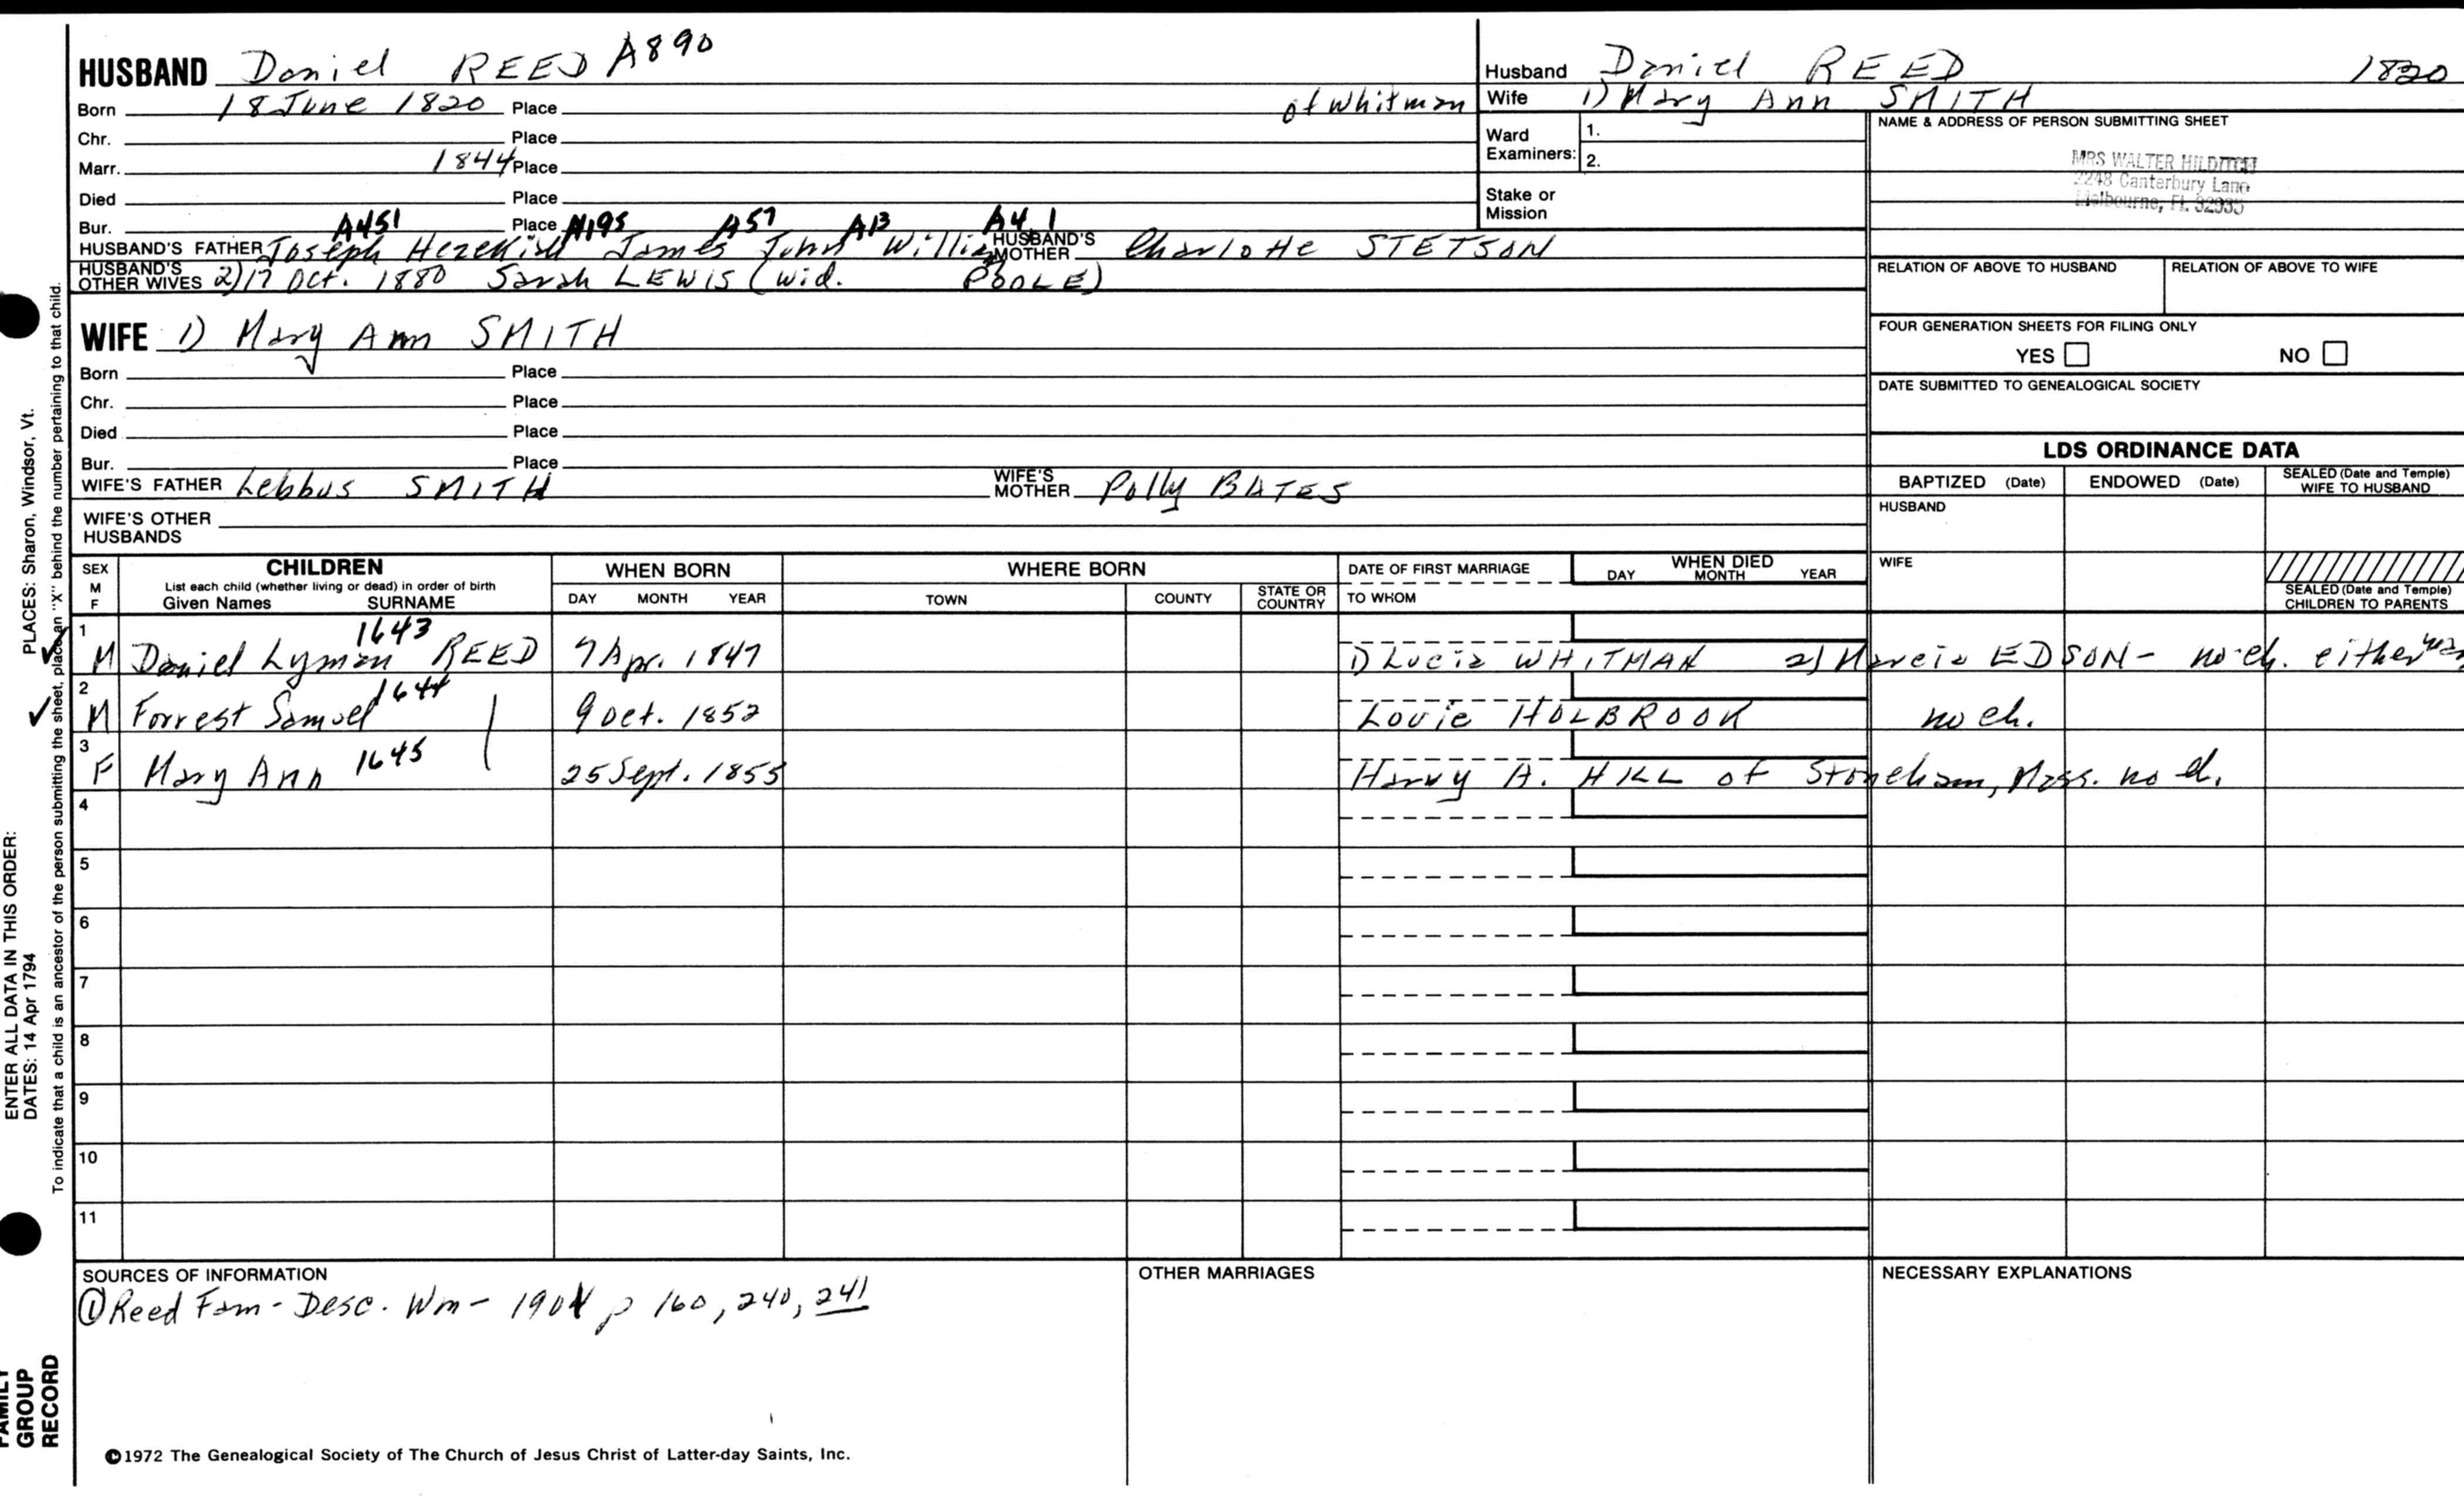 HUSBAND Daniel REED A890
Born 18 June 1820 Place of Whitman
Chr. Place
Marr. 1844 Place
Died Place
Bur. Place
A451 A195 A57 A13 A4 1
HUSBAND'S FATHER Joseph Hezekiah James John William HUSBAND'S MOTHER Charlotte STETSON
HUSBAND'S OTHER WIVES 2) 17 Oct. 1880 Sarah LEWIS (wid. POOLE)
WIFE 1) Mary Ann SMITH
Born Place
Chr. Place
Died Place
Bur. Place
WIFE'S FATHER Lebbus SMITH WIFE'S MOTHER Polly BATES
WIFE'S OTHER HUSBANDS
Husband Daniel REED 1820
Wife 1) Mary Ann SMITH
Ward Examiners: 1.
2.
Stake or Mission
NAME & ADDRESS OF PERSON SUBMITTING SHEET
MRS WALTER HILDITCH
2248 Canterbury Lane
Melbourne, FL 32935
RELATION OF ABOVE TO HUSBAND RELATION OF ABOVE TO WIFE
FOUR GENERATION SHEETS FOR FILING ONLY
YES NO
DATE SUBMITTED TO GENEALOGICAL SOCIETY
LDS ORDINANCE DATA
BAPTIZED (Date) ENDOWED (Date) SEALED (Date and Temple) WIFE TO HUSBAND
HUSBAND
WIFE
SEALED (Date and Temple) CHILDREN TO PARENTS
SEX M F
CHILDREN
List each child (whether living or dead) in order of birth
Given Names SURNAME
WHEN BORN
DAY MONTH YEAR
WHERE BORN
TOWN COUNTY STATE OR COUNTRY
DATE OF FIRST MARRIAGE
TO WHOM
WHEN DIED
DAY MONTH YEAR
1 M Daniel Lyman REED 1643 7 Apr. 1847 1) Lucia WHITMAN 2) Marcia EDSON - no ch. either
2 M Forrest Samuel 1644 9 Oct. 1852 Louie HOLBROOK no ch.
3 F Mary Ann 1645 25 Sept. 1855 Harvy A. HILL of Stoneham, Mass. no ch.
4
5
6
7
8
9
10
11
SOURCES OF INFORMATION
① Reed Fam - Desc. Wm - 1901 p 160, 240, 241
OTHER MARRIAGES
NECESSARY EXPLANATIONS
©1972 The Genealogical Society of The Church of Jesus Christ of Latter-day Saints, Inc.
FAMILY GROUP RECORD
ENTER ALL DATA IN THIS ORDER:
DATES: 14 Apr 1794
PLACES: Sharon, Windsor, Vt.
To indicate that a child is an ancestor of the person submitting the sheet, place an "X" behind the number pertaining to that child.